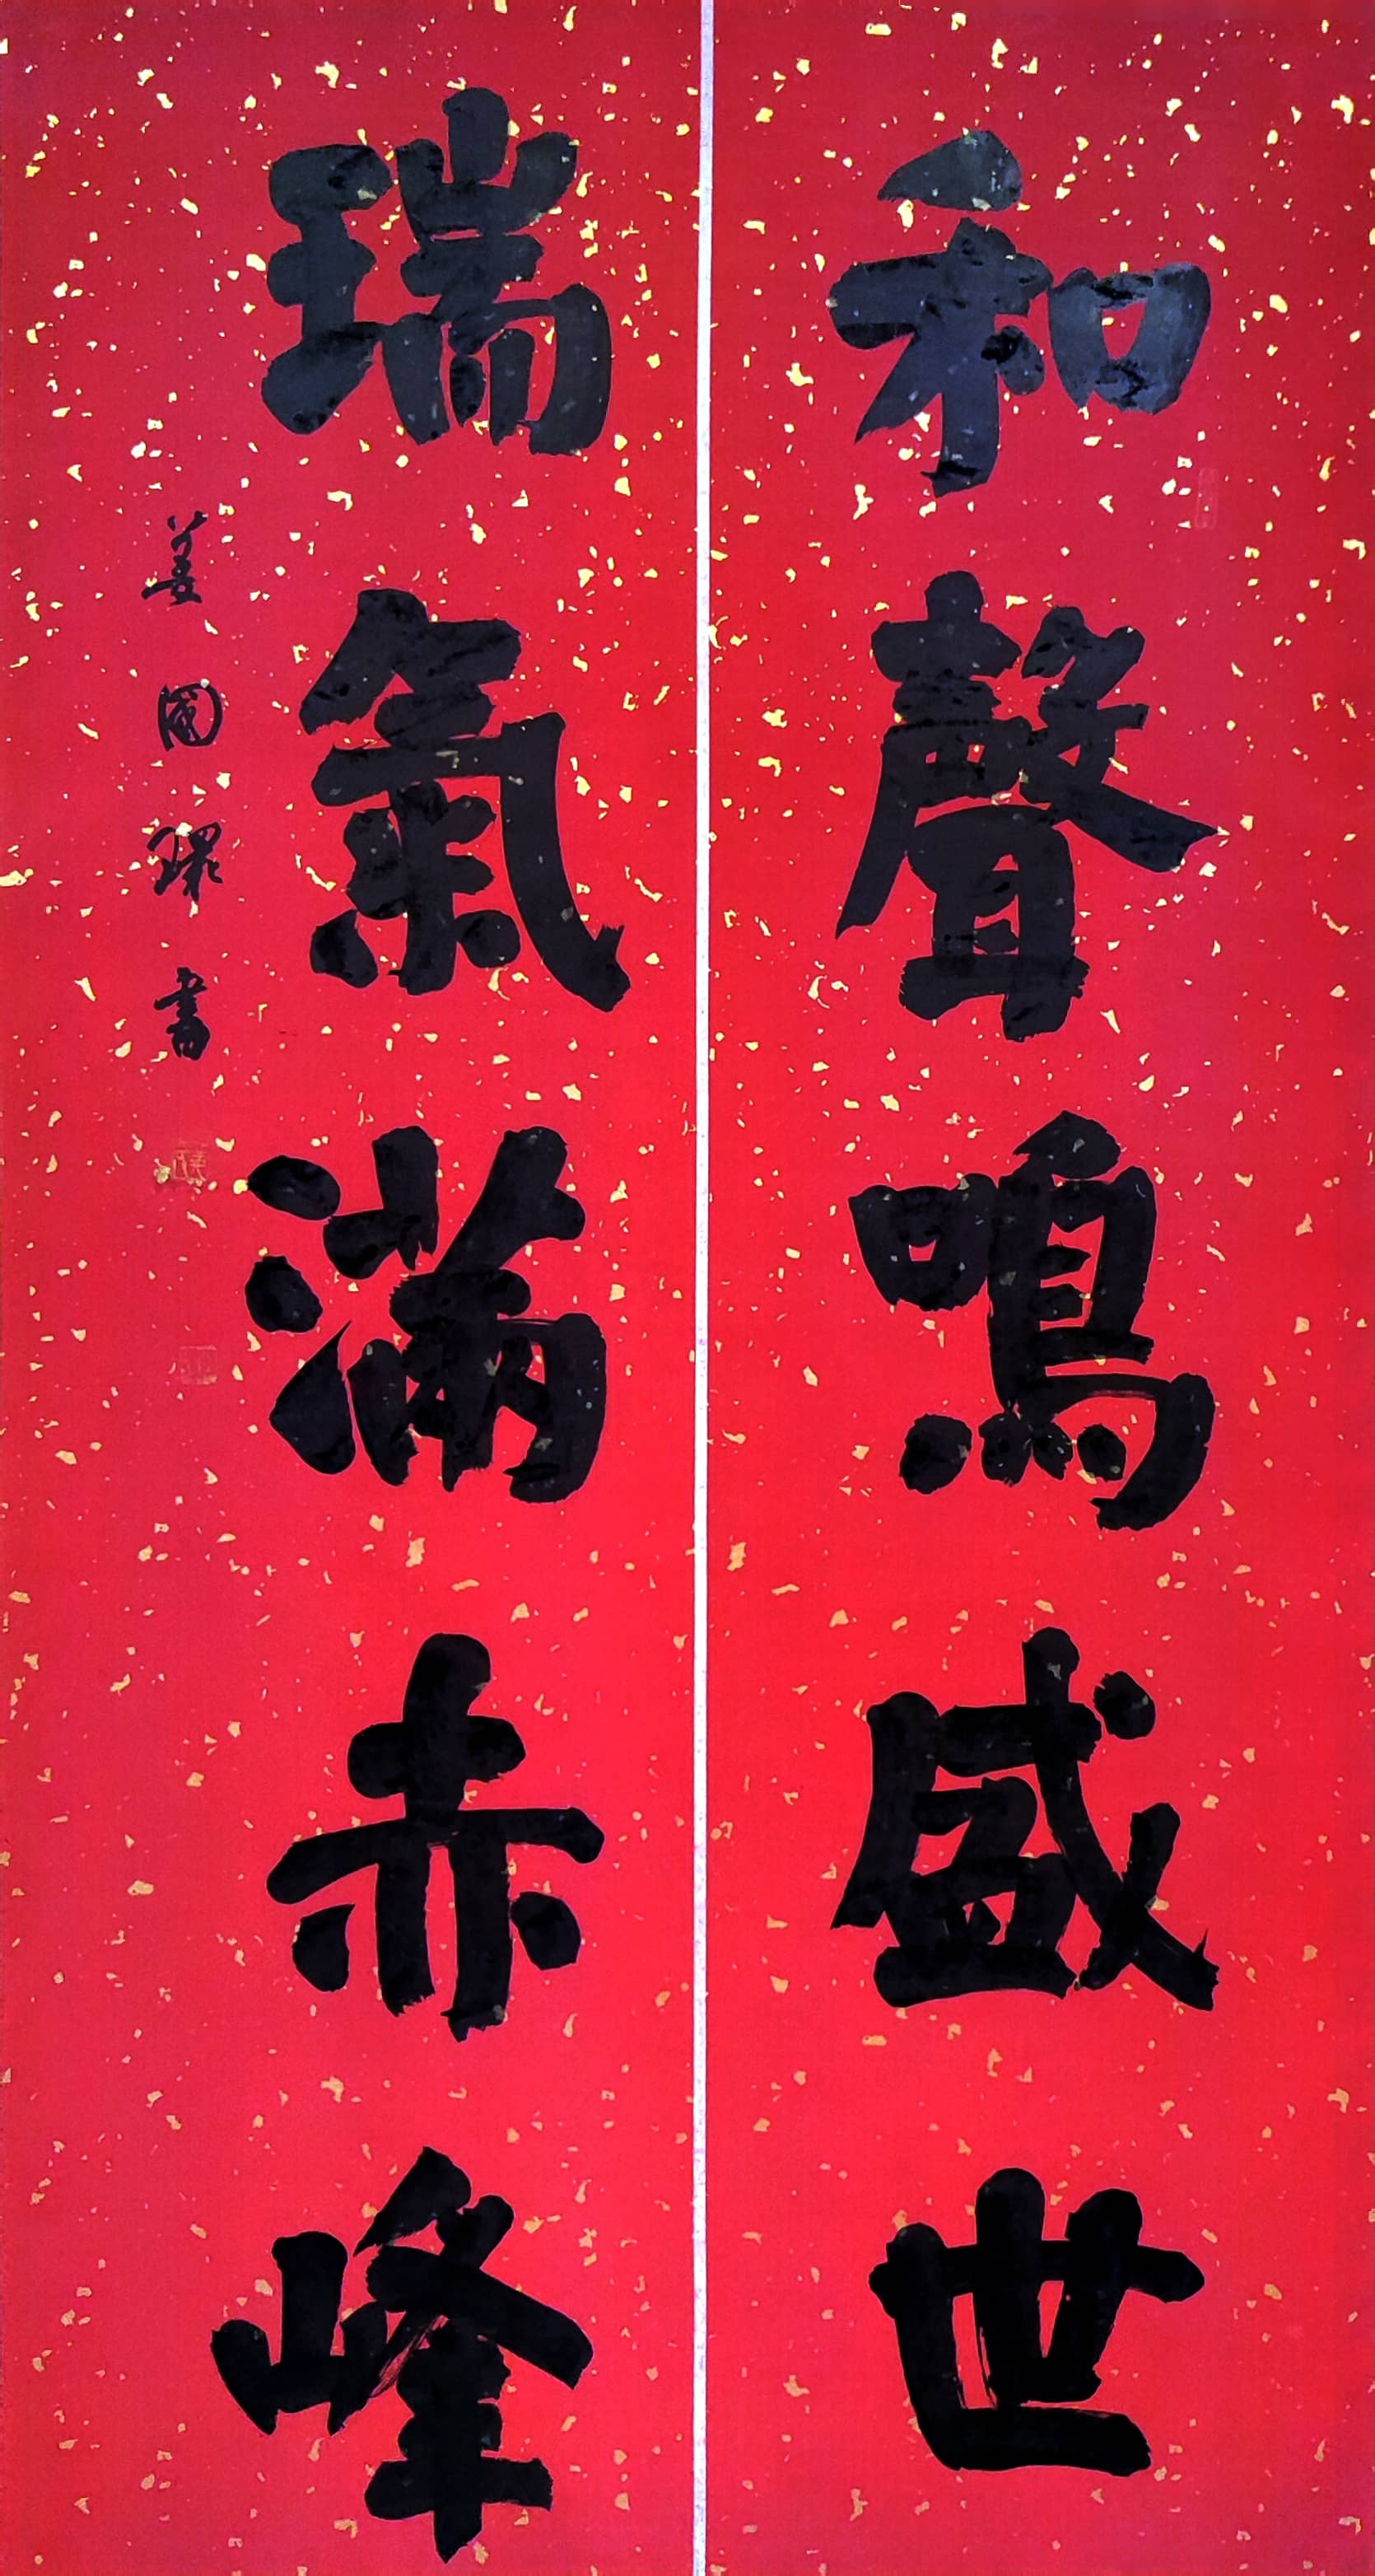 和聲鳴盛世
瑞氣滿赤峰
姜國躍書